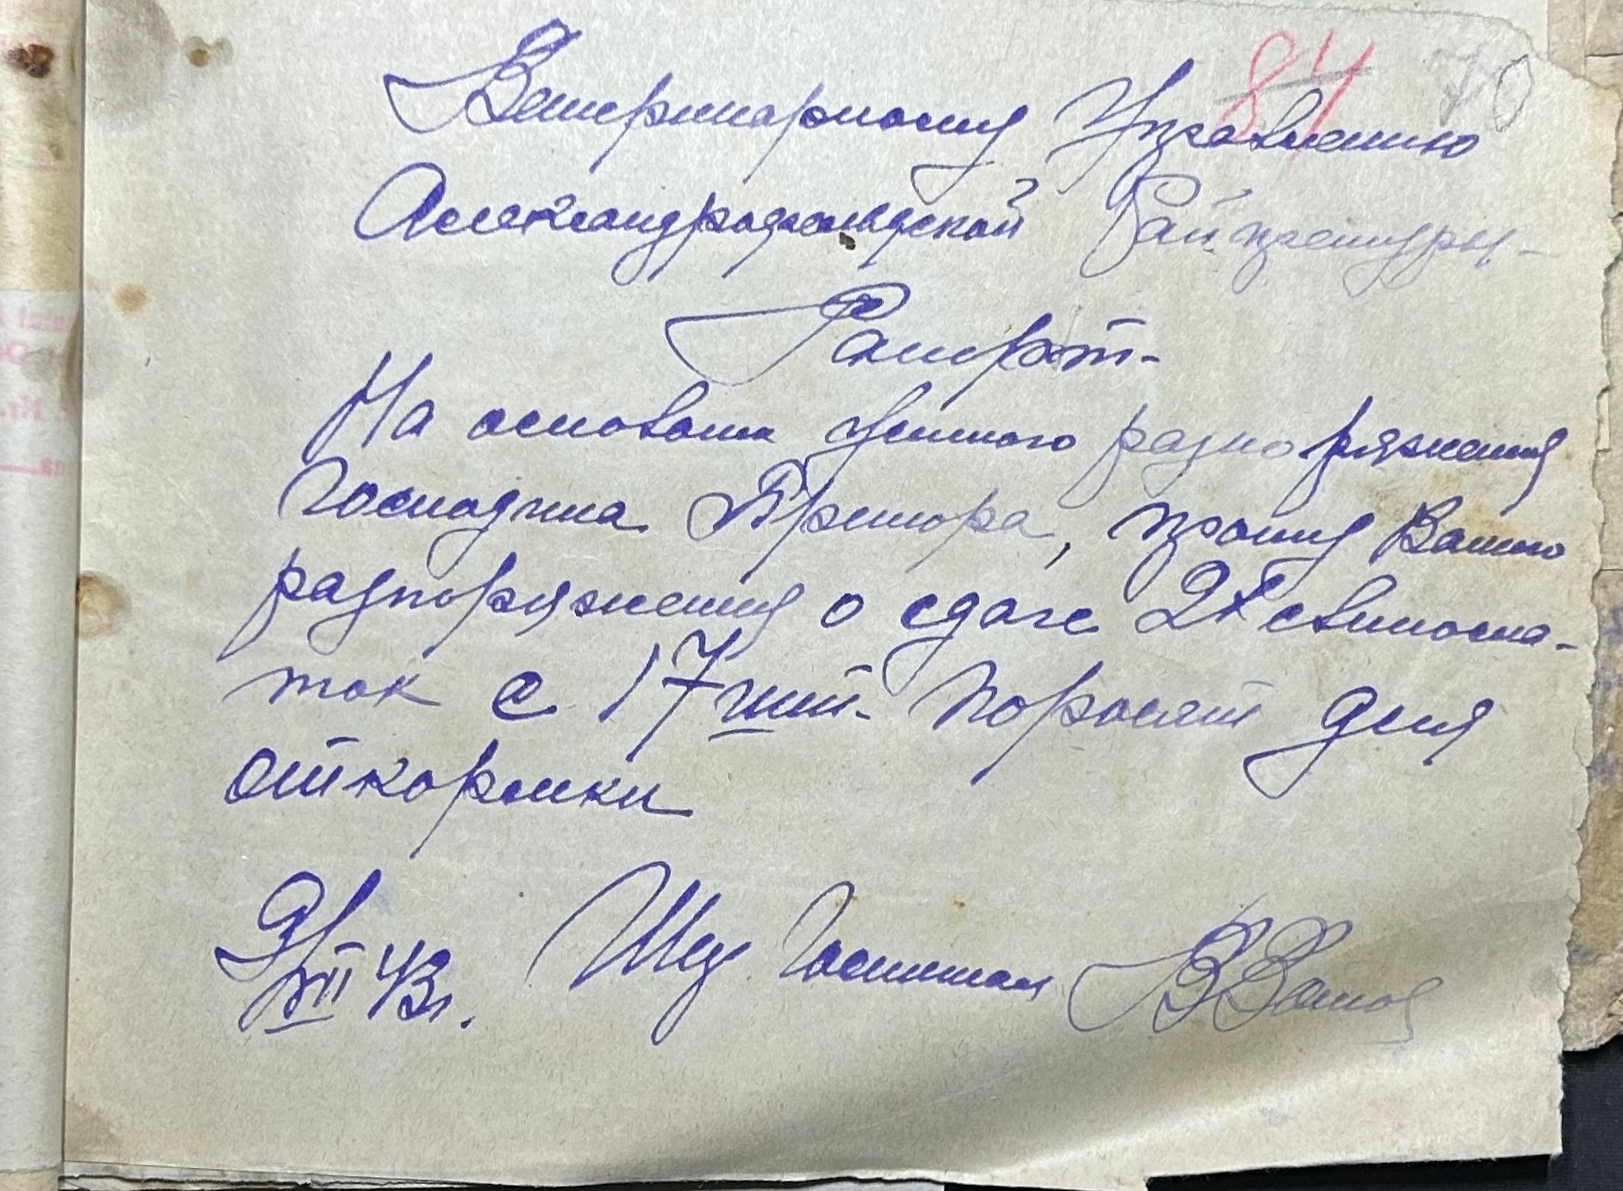 84 70
Ветеринарному Управлению
Александрфельдской Райпретуры-
Рапорт-
На основани устного разпоряжения
Господина Претора, прошу Вашего
разпоряжения о сдаче 2х свинома-
ток с 17 тий- поросят для
откормки
XII 43г. Госпиталя